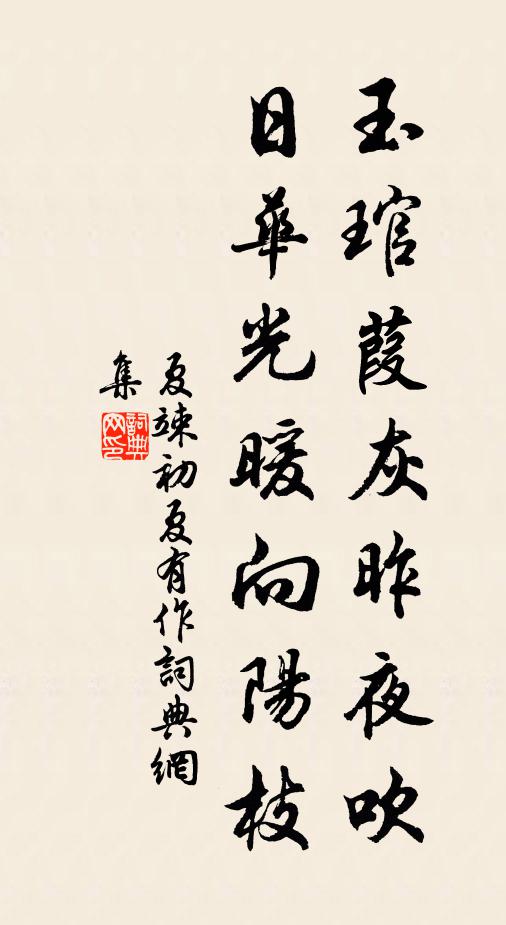 玉琯葭灰昨夜吹
日華光暖向陽枝
夏竦初夏有作詞典網
集
詞典网印